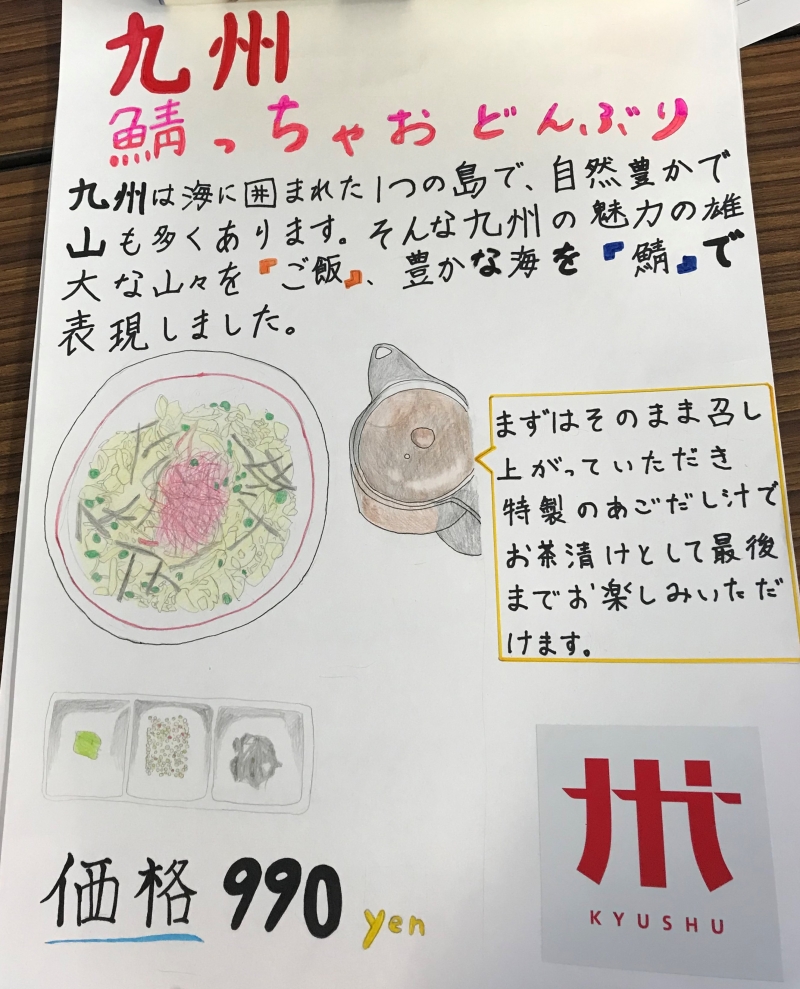 九州
鯖っちゃおどんぶり
九州は海に囲まれた1つの島で、自然豊かで
山も多くあります。そんな九州の魅力の雄
大な山々を『ご飯』、豊かな海を『鯖』で
表現しました。
まずはそのまま召し
上がっていただき
特製のあごだし汁で
お茶漬けとして最後
までお楽しみいただ
けます。
価格 990 yen
州
KYUSHU